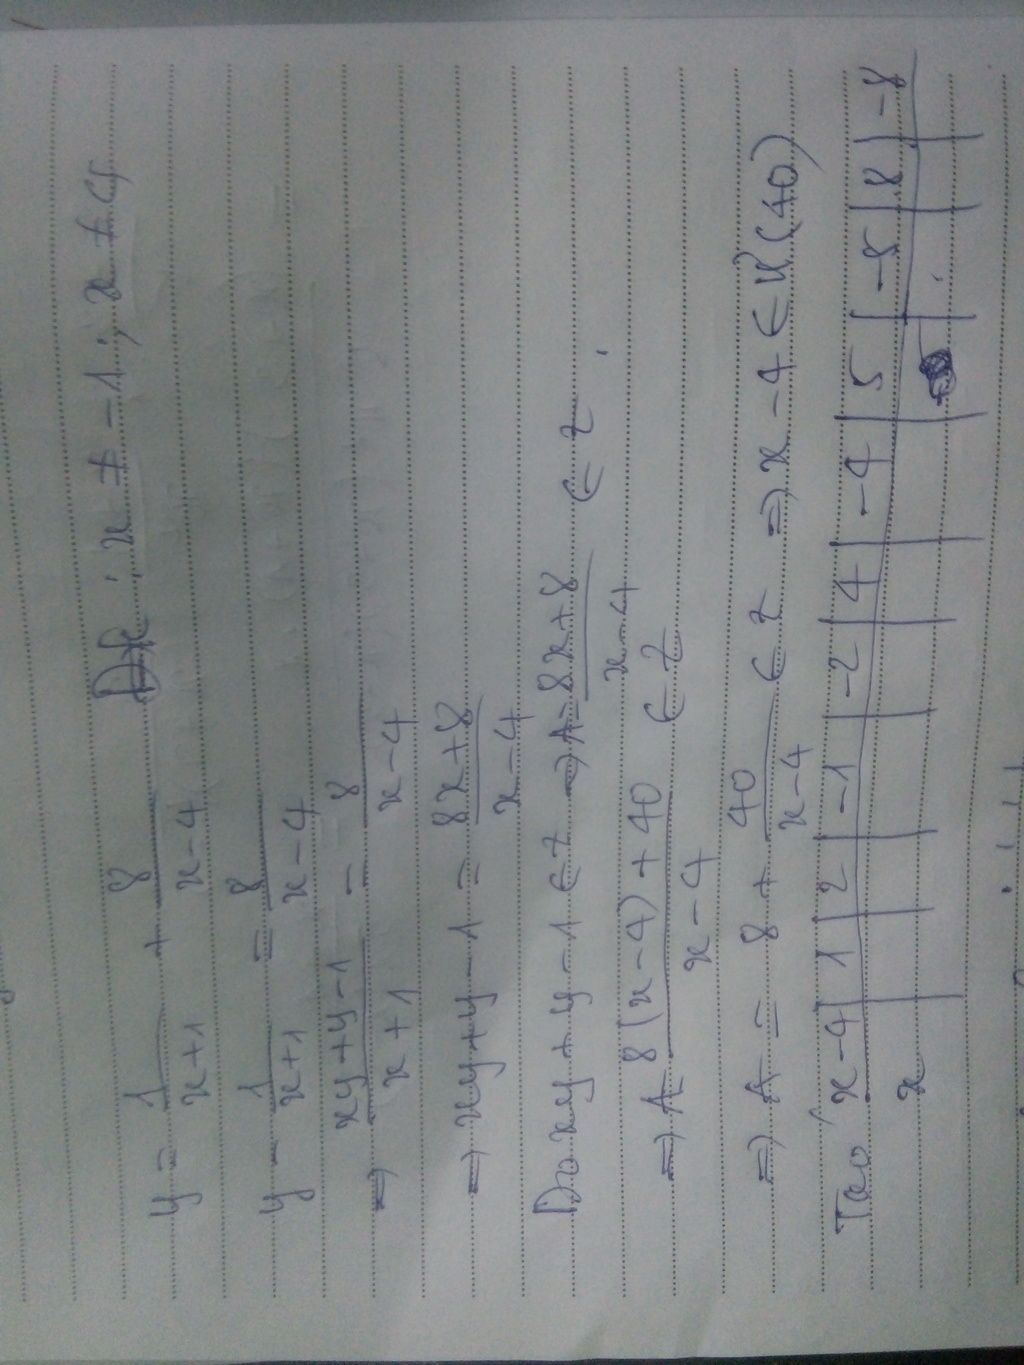 y = 1/(x+1) + 8/(x-4) ĐK : x ≠ -1 ; x ≠ 4
y - 1/(x+1) = 8/(x-4)
=> (xy+y-1)/(x+1) = 8/(x-4)
=> xy+y-1 = (8x+8)/(x-4)
Do xy+y-1 ∈ Z => A = (8x+8)/(x-4) ∈ Z
=> A = (8(x-4)+40)/(x-4) ∈ Z
=> A = 8 + 40/(x-4) ∈ Z => x-4 ∈ Ư(40)
Ta có x-4 | 1 | 2 | -1 | -2 | 4 | -4 | 5 | -5 | 8 | -8
x